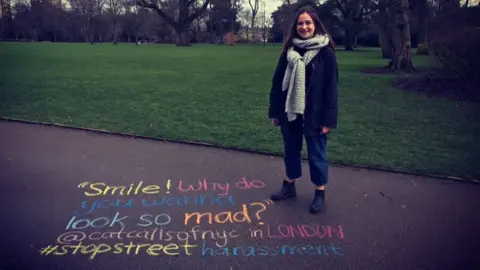 "Smile! Why do
you wanna
look so mad?
@catcallsofnyc in LONDON
#stopstreet harassment